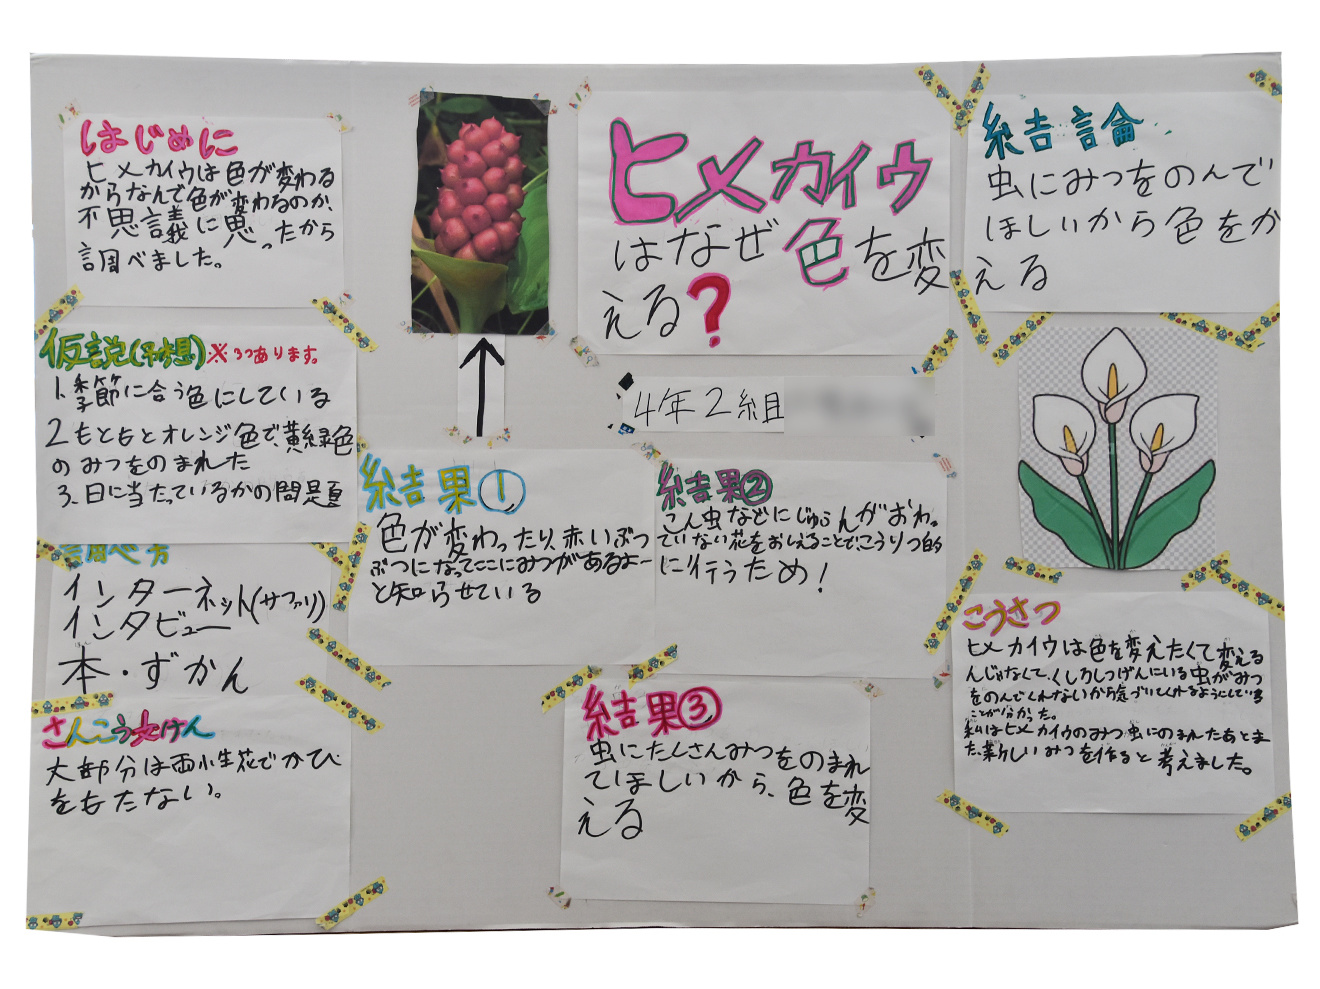 はじめに
ヒメカイウは色が変わる
からなんで色が変わるのか、
不思議に思ったから
調べました。
仮説(予想)※3つあります。
1.季節に合う色にしている
2もともとオレンジ色で、黄緑色
のみつをのまれた
3.日に当たっているかの問題
調べ方
インターネット(サファリ)
インタビュー
本・ずかん
さんこう文けん
大部分は両小生花でかひ
をもたない。
ヒメカイウ
はなぜ色を変
える?
4年2組
結果①
色が変わったり、赤いぶつ
ぶつになってここにみつがあるよー
と知らせている
結果②
こん虫などにじゅふんがおわっ
ていない花をおしえることで、こうりつ的
に行うため!
結果③
虫にたくさんみつをのまれ
てほしいから、色を変
える
結論
虫にみつをのんで
ほしいから色をか
える
こうさつ
ヒメカイウは色を変えたくて変える
んじゃなくて、くしろしつげんにいる虫がみつ
をのんでくれないから気づいてくれるようにしている
ことが分かった。
私はヒメカイウのみつ虫にのまれたあとま
た、新しいみつを作ると考えました。